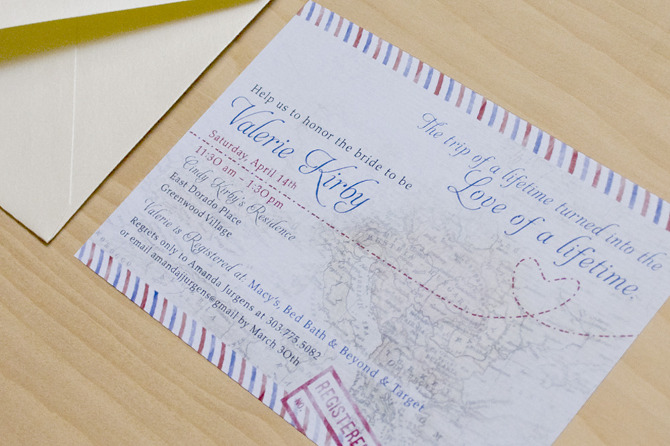 Help us to honor the bride to be
Valerie Kirby
Saturday, April 14th
11:30 am - 1:30 pm
Cindy Kirby's Residence
East Dorado Place
Greenwood Village
Valerie is Registered at: Macy's, Bed Bath & Beyond & Target
Regrets only to Amanda Jurgens at 303.775.5082
or email amandajjurgens@gmail by March 30th
The trip of a lifetime turned into the
Love of a lifetime.
REGISTERED
NO.